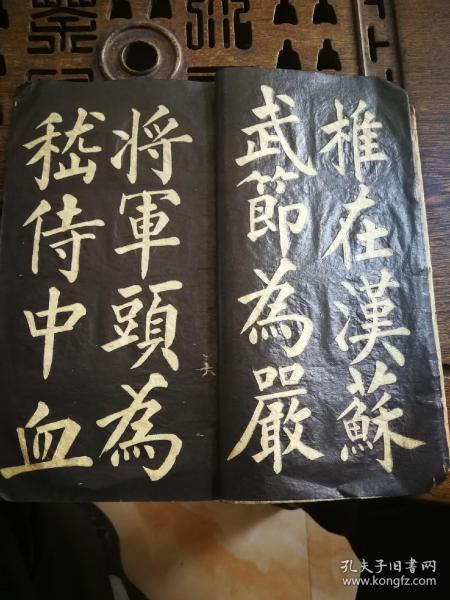 椎在漢蘇
武節為嚴
將軍頭為
嵇侍中血
孔夫子旧书网
www.kongfz.com